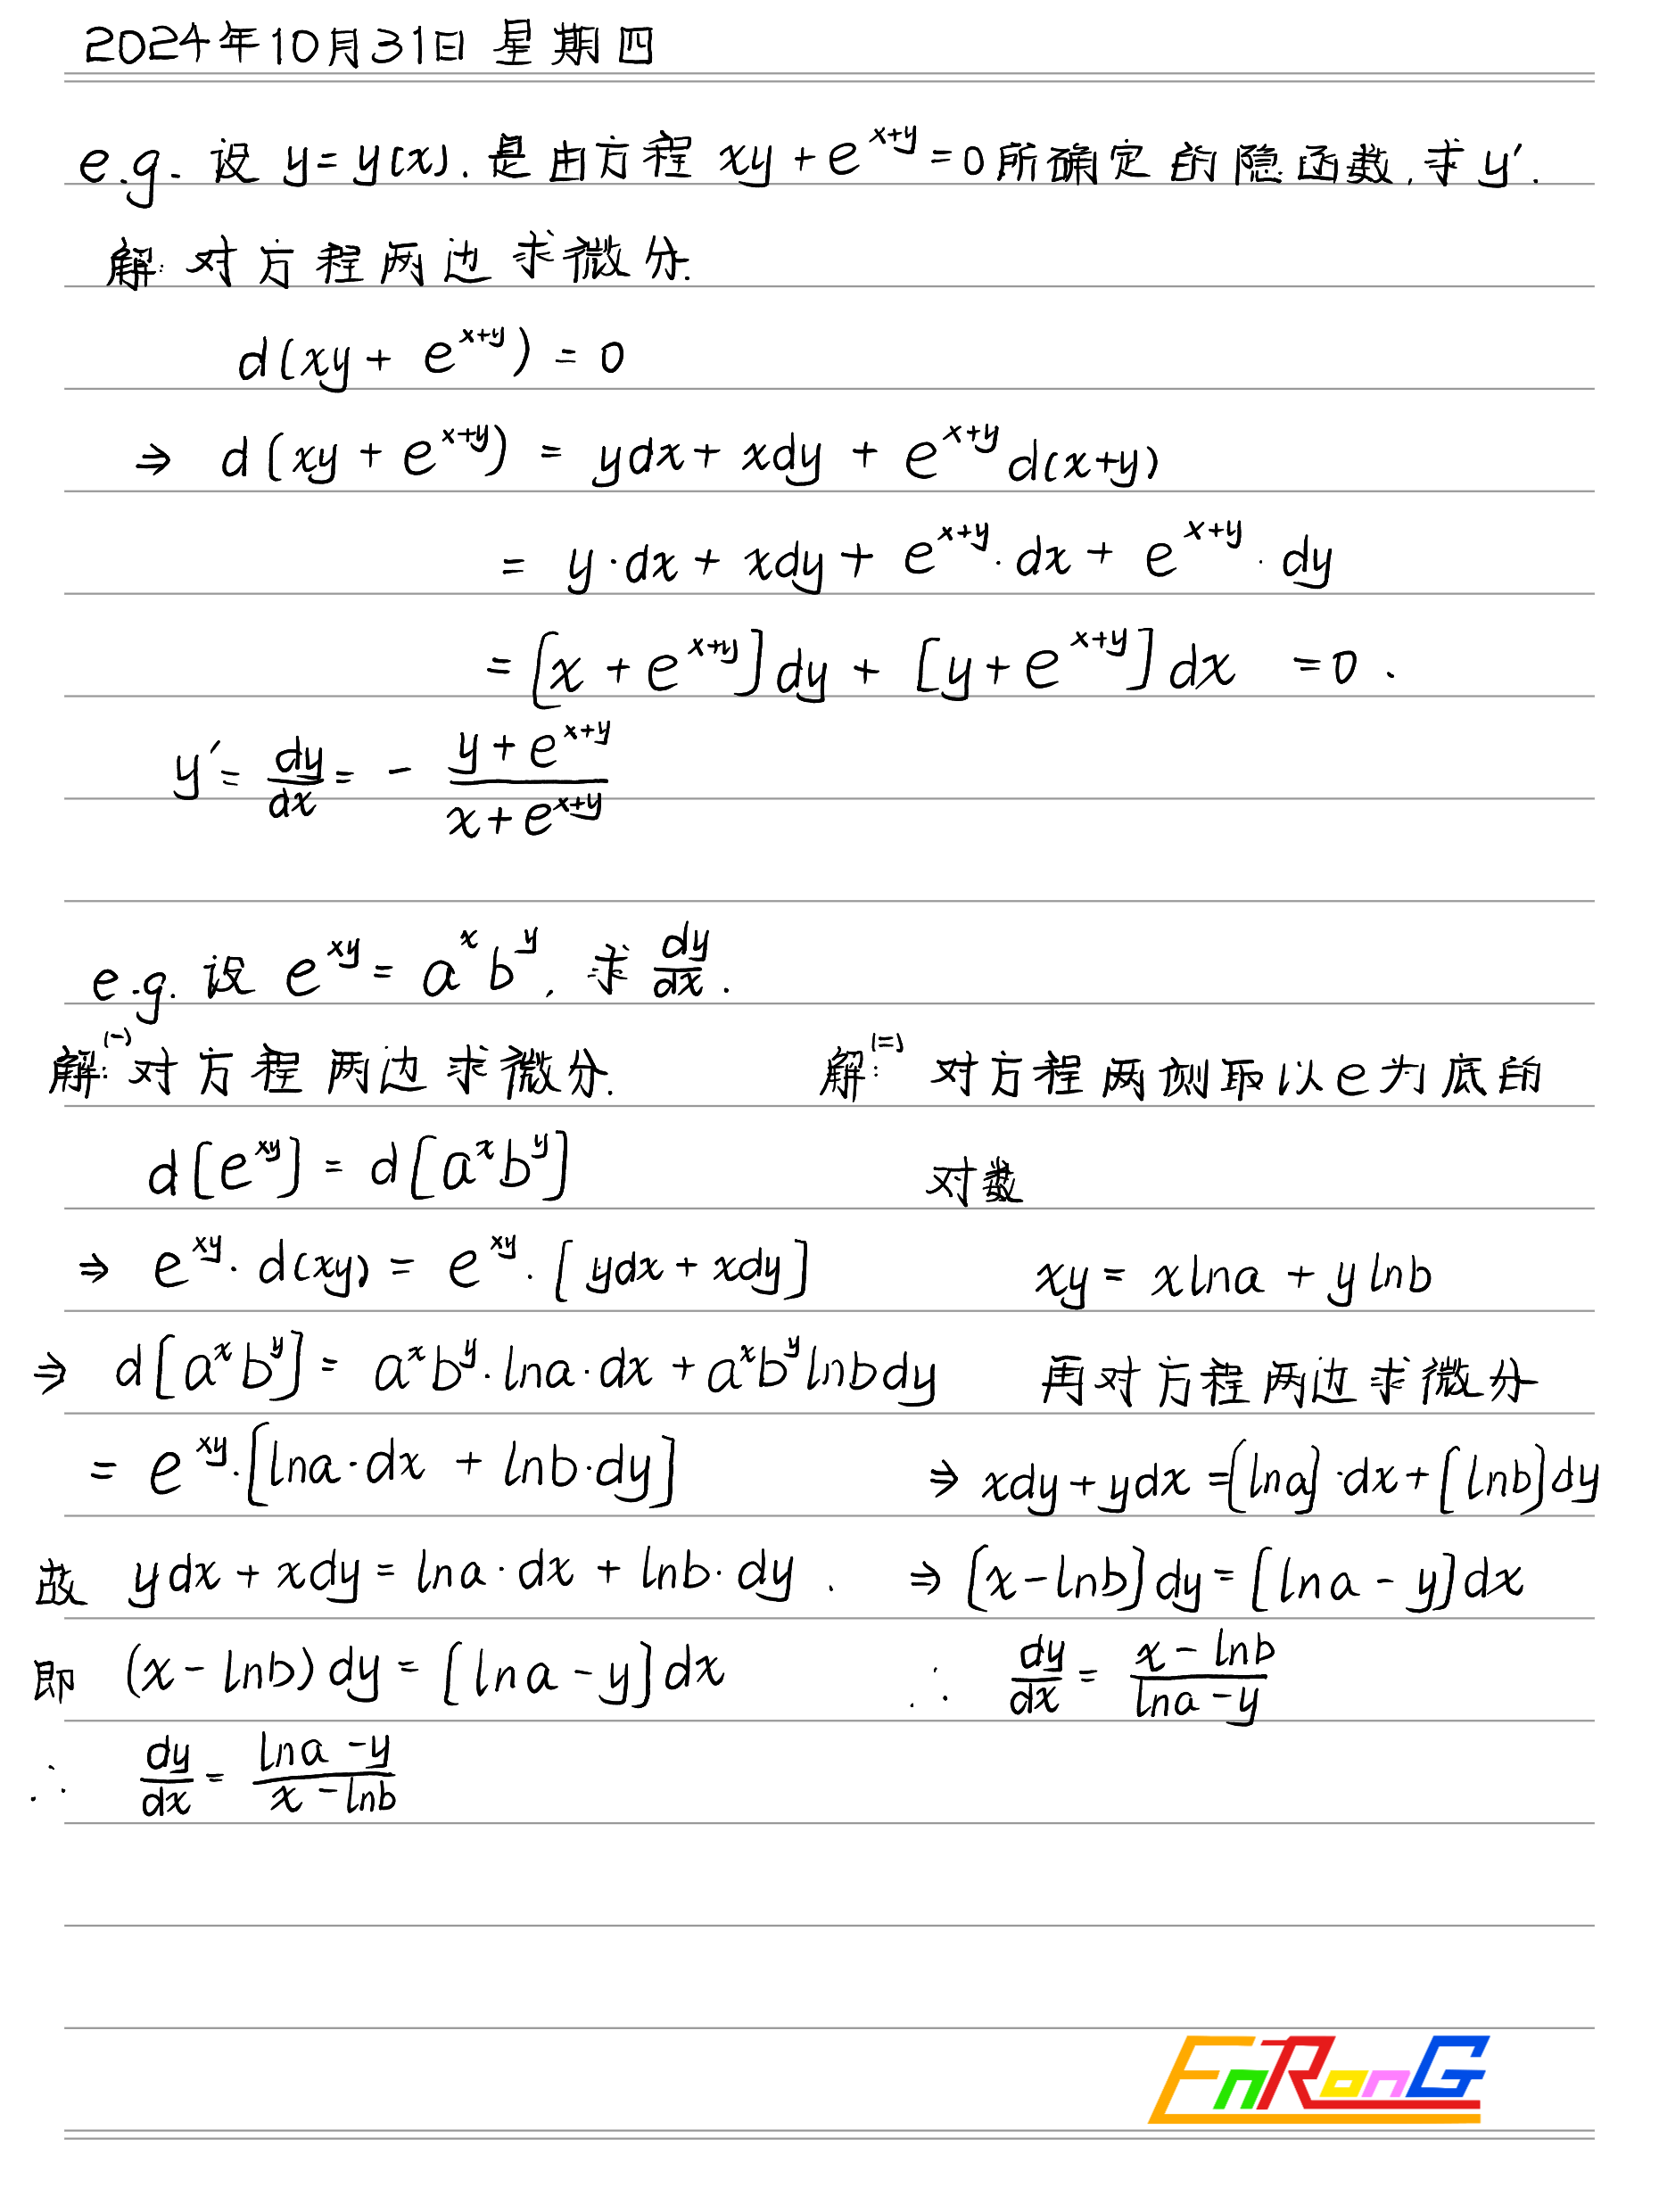 2024年10月31日 星期四
e.g. 设 y=y(x). 是由方程 xy+e^{x+y}=0所确定的隐函数,求y'.
解: 对方程两边求微分.
d(xy+e^{x+y})=0
⇒ d(xy+e^{x+y}) = ydx+xdy+e^{x+y}d(x+y)
= y·dx+xdy+e^{x+y}·dx+e^{x+y}·dy
=[x+e^{x+y}]dy+[y+e^{x+y}]dx =0.
y'=\frac{dy}{dx}=-\frac{y+e^{x+y}}{x+e^{x+y}}
e.g. 设 e^{xy}=a^x b^y, 求 \frac{dy}{dx}.
解:(一)对方程两边求微分.
d[e^{xy}]=d[a^x b^y]
⇒ e^{xy}·d(xy)=e^{xy}·[ydx+xdy]
⇒ d[a^x b^y]=a^x b^y·lna·dx+a^x b^y lnbdy
=e^{xy}·[lna·dx+lnb·dy]
故 ydx+xdy=lna·dx+lnb·dy.
即 (x-lnb)dy=[lna-y]dx
∴ \frac{dy}{dx}=\frac{lna-y}{x-lnb}
解:(二) 对方程两侧取以e为底的
对数
xy=xlna+ylnb
再对方程两边求微分
⇒ xdy+ydx=[lna]·dx+[lnb]dy
⇒ [x-lnb]dy=[lna-y]dx
∴ \frac{dy}{dx}=\frac{x-lnb}{lna-y}
EnRonG